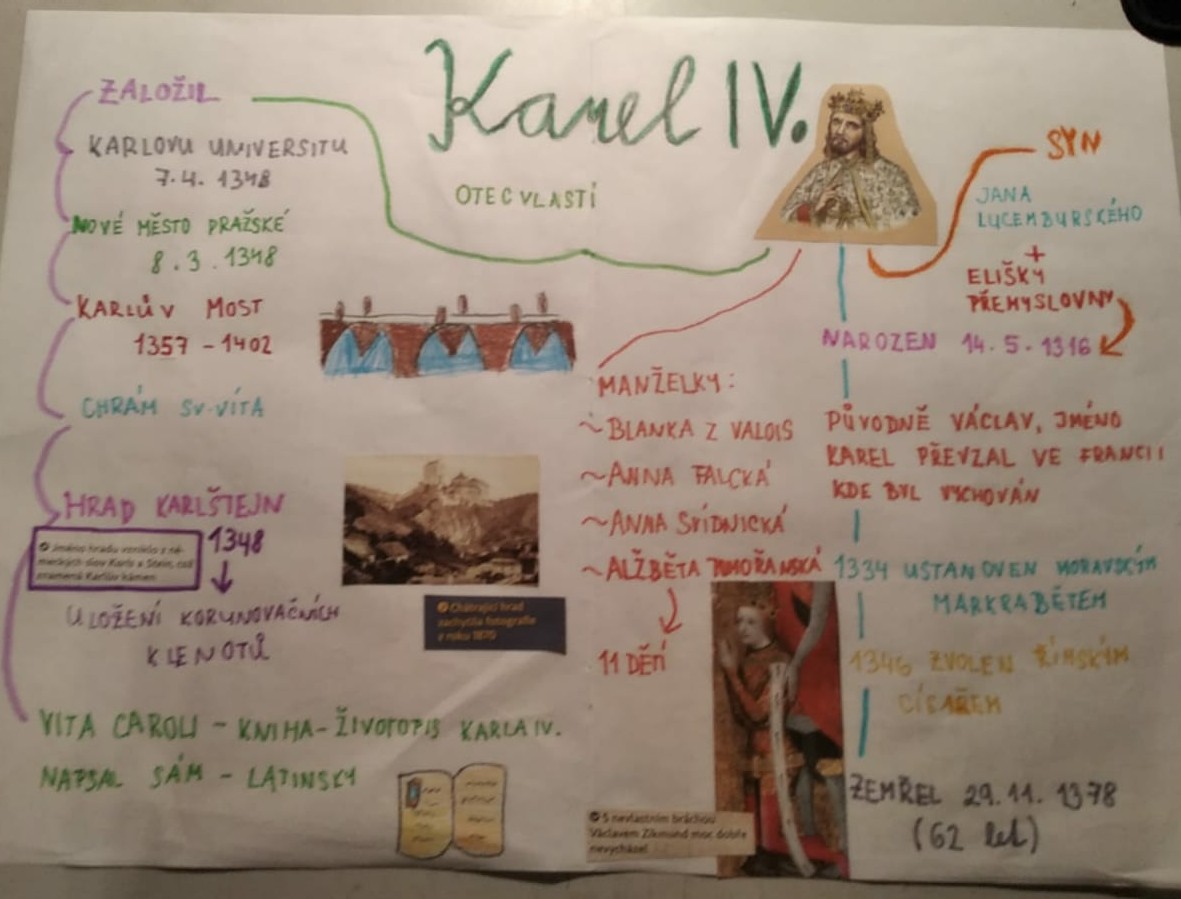 Karel IV.
OTEC VLASTI
ZALOŽIL
KARLOVU UNIVERSITU
7.4. 1348
NOVÉ MĚSTO PRAŽSKÉ
8.3.1348
KARLŮV MOST
1357 - 1402
CHRÁM SV.VÍTA
HRAD KARLŠTEJN
1348
Jméno hradu vzniklo z ně-
meckých slov Karls a Stein, což
znamená Karlův kámen.
ULOŽENÍ KORUNOVAČNÍCH
KLENOTŮ
VITA CAROLI - KNIHA - ŽIVOTOPIS KARLA IV.
NAPSAL SÁM - LATINSKY
Chátrající hrad
zachytila fotografie
z roku 1870
MANŽELKY:
~BLANKA Z VALOIS
~ANNA FALCKÁ
~ANNA SVÍDNICKÁ
~ALŽBĚTA POMOŘANSKÁ
11 DĚTÍ
S nevlastním bráchou
Václavem Zikmund moc dobře
nevycházel
SYN
JANA
LUCEMBURSKÉHO
+
ELIŠKY
PŘEMYSLOVNY
NAROZEN 14.5.1316
PŮVODNĚ VÁCLAV, JMÉNO
KAREL PŘEVZAL VE FRANCII
KDE BYL VYCHOVÁN
1334 USTANOVEN MORAVSKÝM
MARKRABĚTEM
1346 ZVOLEN ŘÍMSKÝM
CÍSAŘEM
ZEMŘEL 29.11.1378
(62 let)